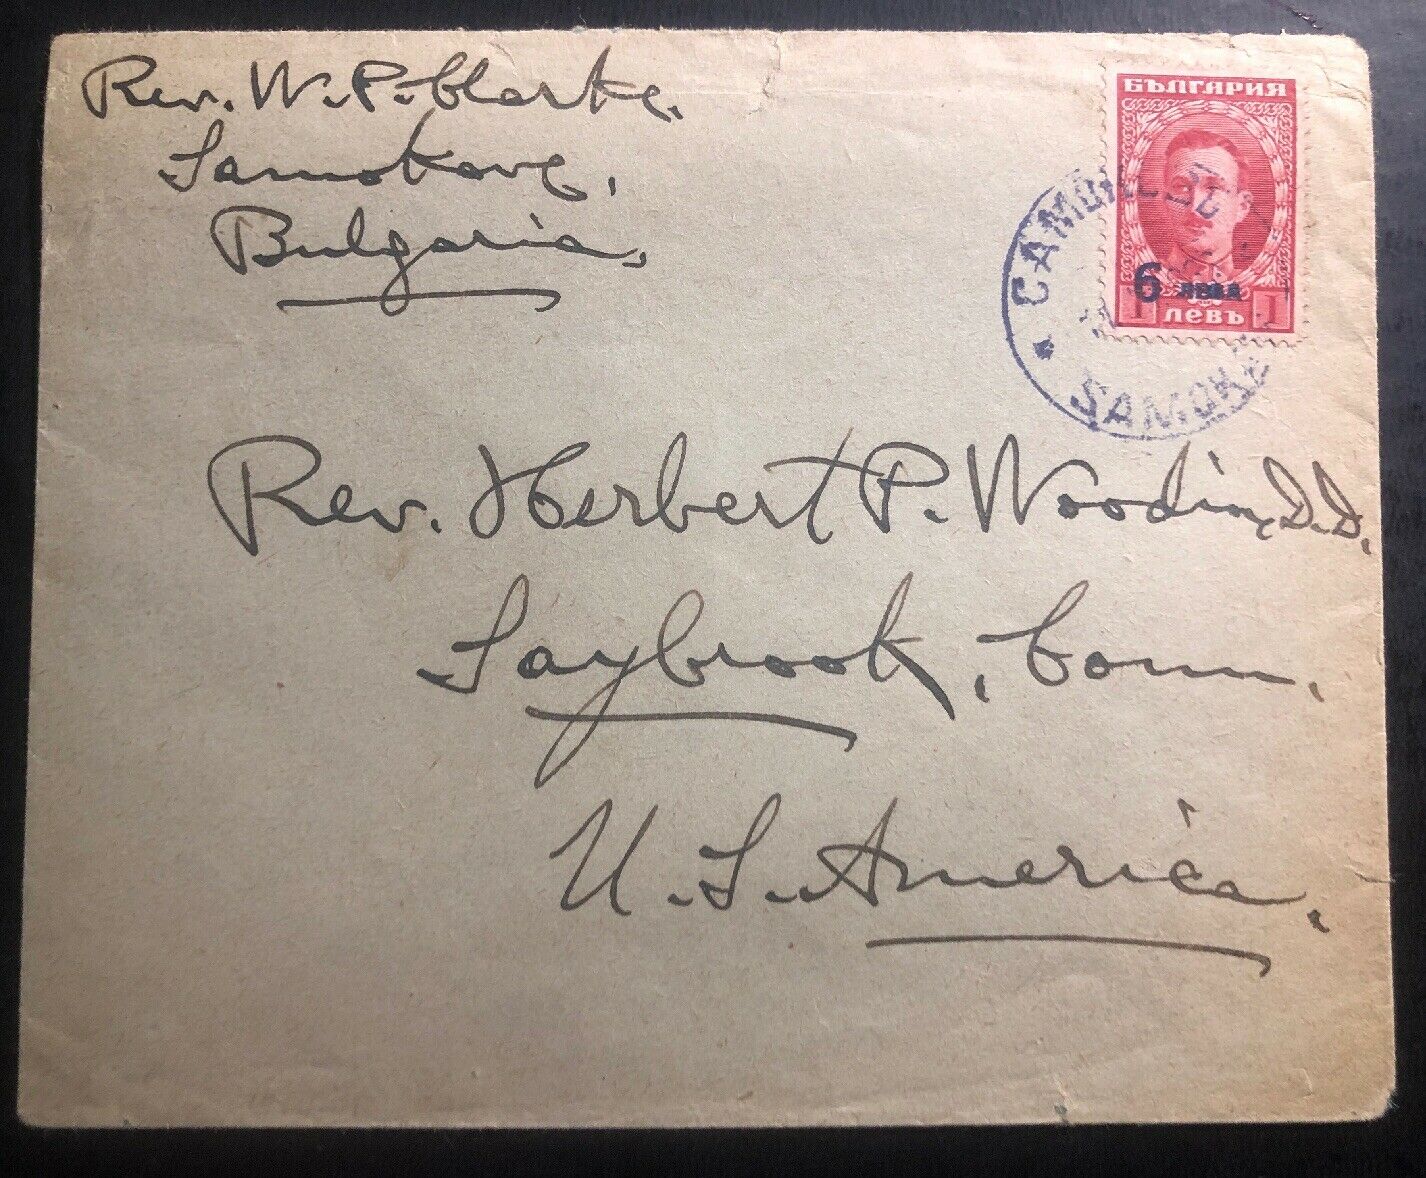 Rev. W. P. Clarke.
Samokove,
Bulgaria,
БЪЛГАРИЯ
6 лева
1 левъ 1
САМОКОВЪ
SAMOKO
Rev. Herbert P. Woodin, D.D.
Saybrook, Conn.
U. S. America.